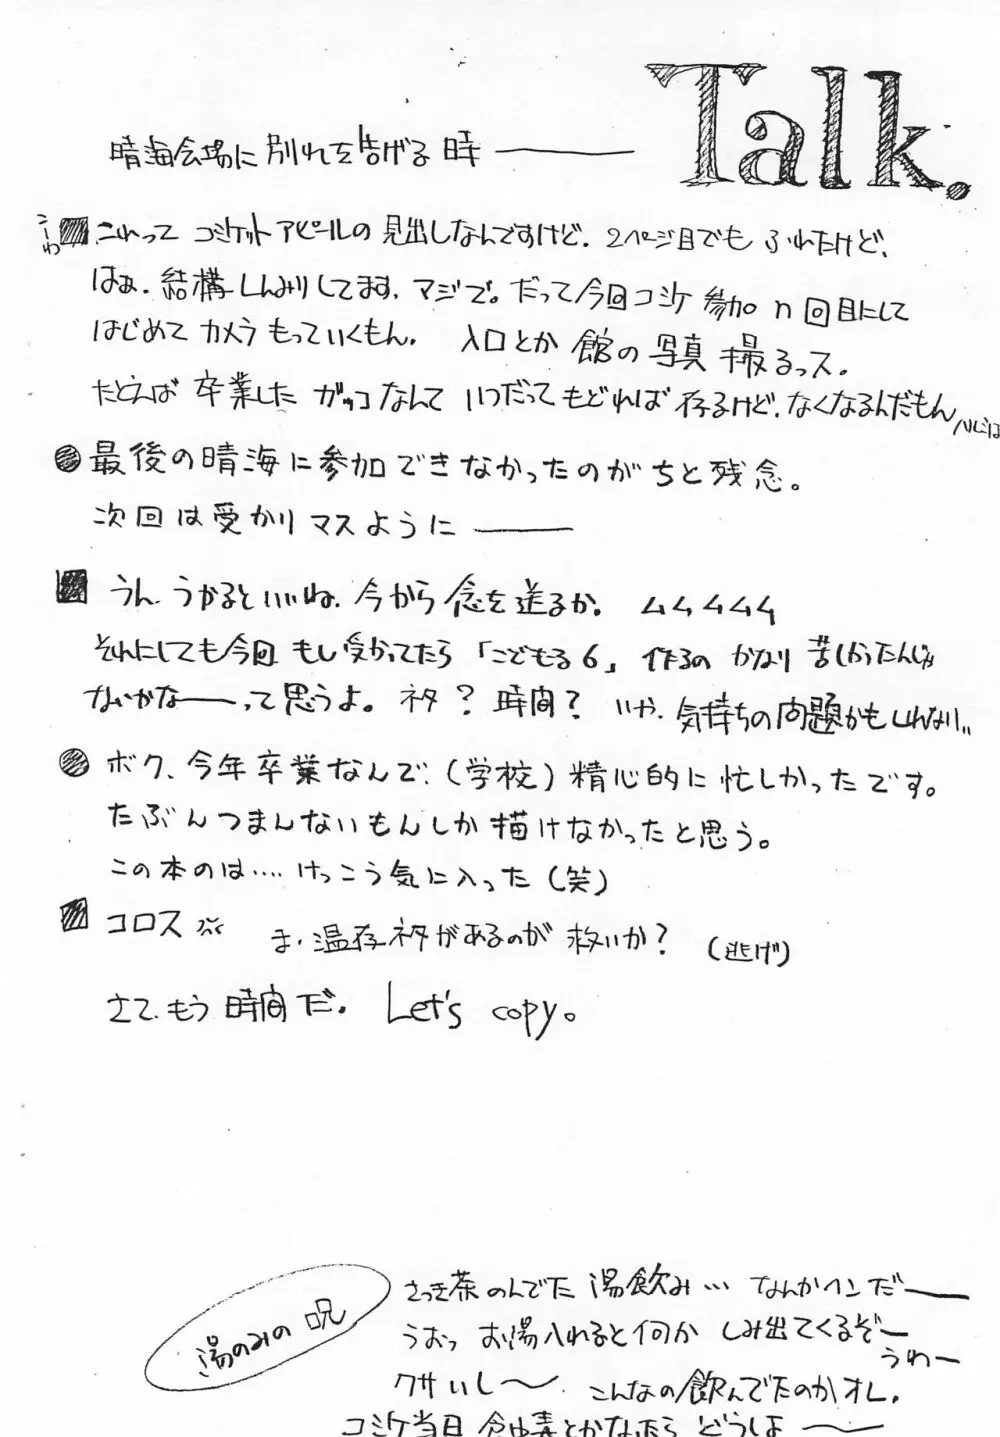 Talk.
晴海会場に別れを告げる時――
こーわ
これって コミケットアピールの見出しなんですけど. 2ページ目でも ふれたけど、
はぁ. 結構しんみりしてます. マジで。だって今回コミケ 参加n回目にして
はじめて カメラ もっていくもん. 入口とか 館の写真 撮るっス。
たとえば 卒業した ガッコなんて いつだって もどれば 存るけど. なくなるんだもん
●最後の晴海に参加できなかったのがちと残念。
次回は受かりマスように――
■ うん. うかるといいね. 今から念を送るか. ムムムムム
それにしても今回 もし受かってたら「こどもる6」作るの かなり 苦しかったんじゃ
ないかなーーって思うよ。ネタ? 時間? いや. 気持ちの問題かもしれない..
● ボク、今年卒業なんで、(学校)精心的に忙しかったです。
たぶんつまんないもんしか描けなかったと思う。
この本のは‥‥けっこう気に入った(笑)
■ コロス ま. 温存ネタがあるのが 救いか? (逃げ)
さて. もう 時間だ. Let's copy。
湯のみの呪
さっき茶のんでた 湯飲み… なんかヘンだ――
うおっ お湯入れると何か しみ出てくるぞー
うわー
クサいし〜. こんなの飲んでたのかオレ.
コミケ当日 食中毒とかなったら どうしよ 〜